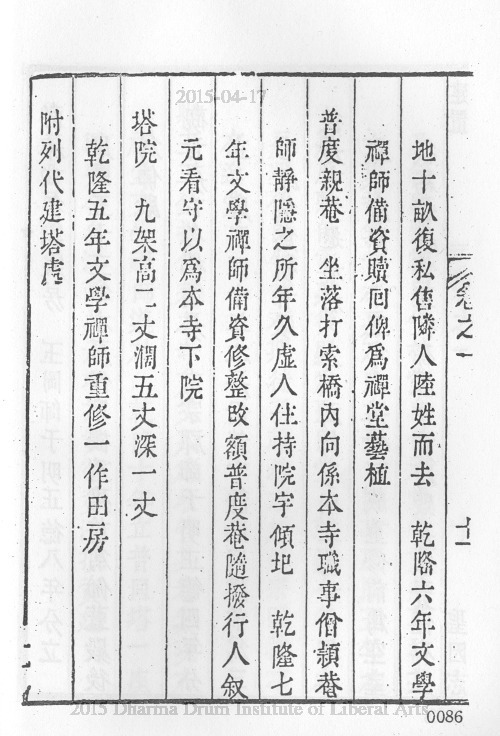 地十畝復私售隣人陸姓而去　乾隆六年文學
禪師備資贖囘俾為禪堂藝植
普度親菴　坐落打索橋內向係本寺職事僧頴菴
師靜隱之所年久虛人住持院宇傾圯　乾隆七
年文學禪師備資修整改額普度菴隨撥行人叙
元看守以爲本寺下院
塔院　九架高二丈濶五丈深一丈
乾隆五年文學禪師重修一作田房
附列代建塔處
卷之一
2015-04-17
2015 Dharma Drum Institute of Liberal Arts
0086